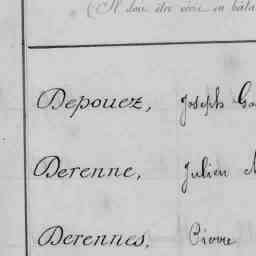 (Il doit être écrit en bâta
Depouez, Joseph
Derenne, Julien
Derennes, Pierre